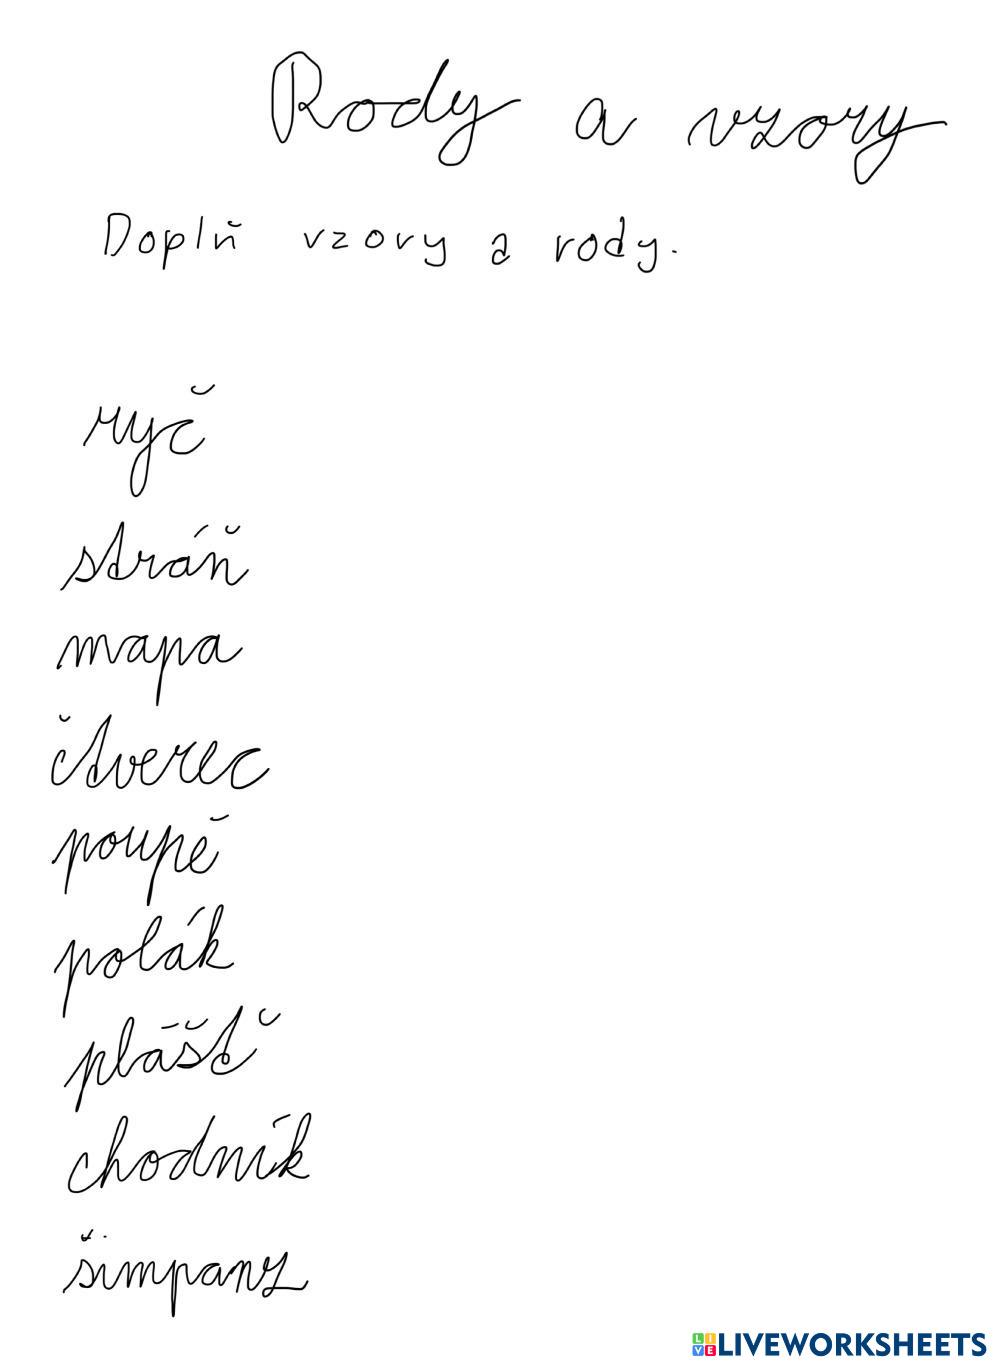 Rody a vzory
Doplň vzory a rody.
ryč
stráň
mapa
čtverec
poupě
polák
plášť
chodník
šimpanz
LIVEWORKSHEETS